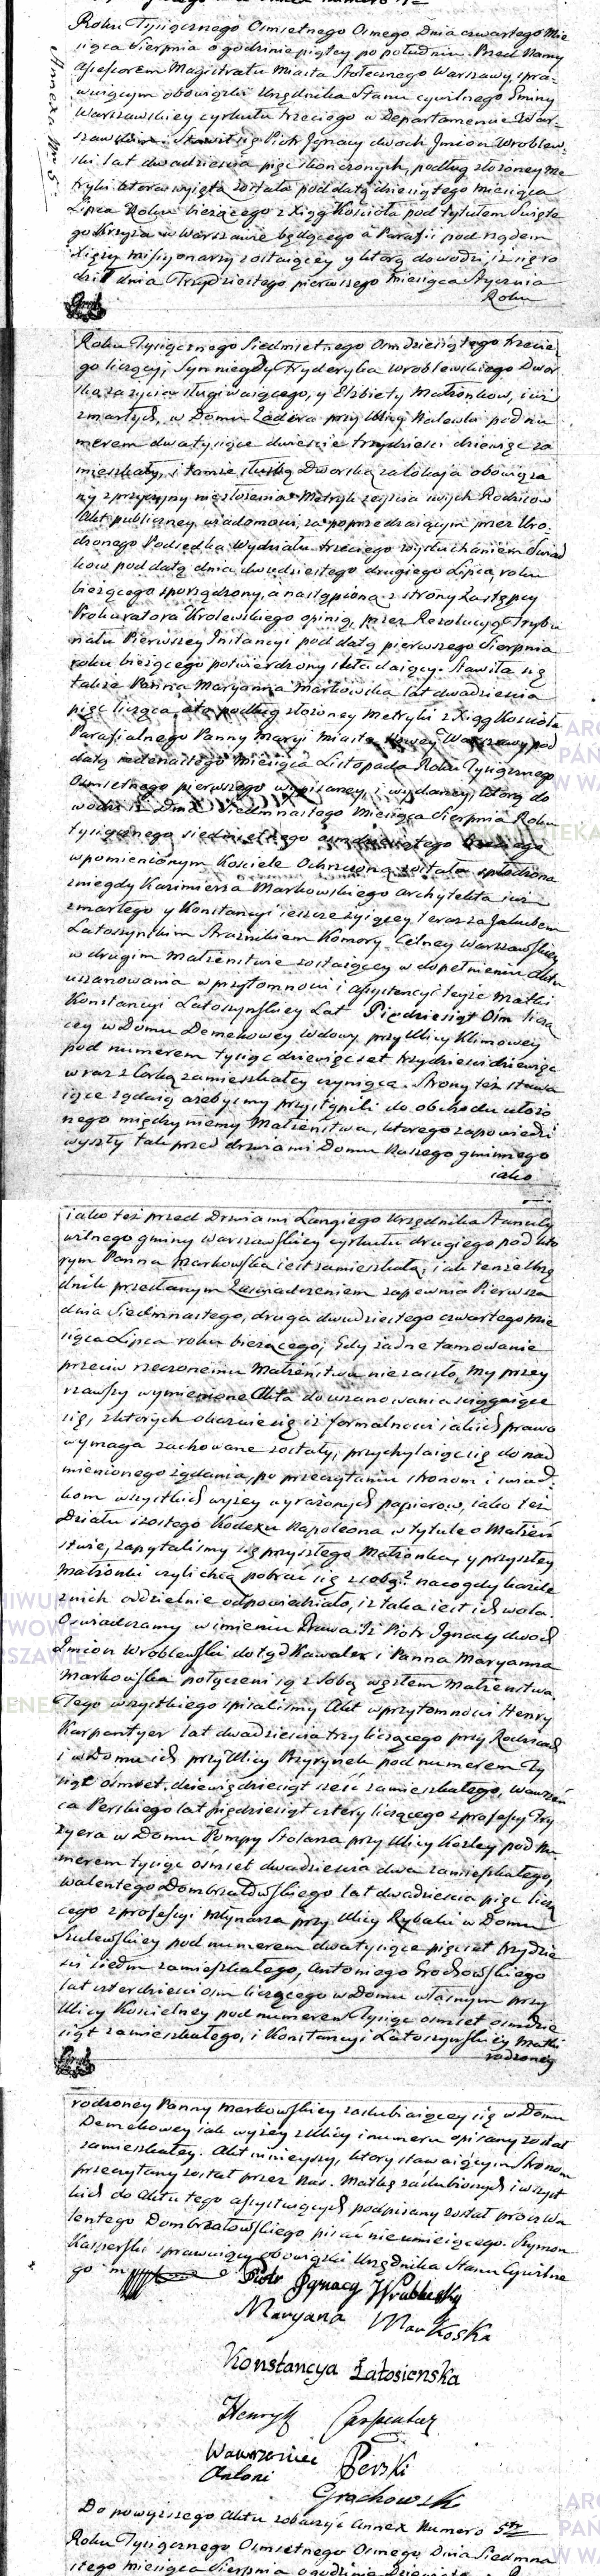 Roku Tysiącznego Osmsetnego Osmego Dnia czwartego Mie
siąca Sierpnia o godzinie piątey po południu. Przed Nami
Assessorem Magistratu Miasta Stołecznego Warszawy, spra-
wuiącym obowiązki Urzędnika Stanu cywilnego Gminy
Warszawskiey cyrkułu trzeciego w Departamencie War-
szawskim. Stawił się Piotr Ignacy dwóch Imion Wroblew-
ski lat dwadzieścia pięć skończonych, podług złożoney Me
tryki która wyięta została pod datą dziesiątego miesiąca
Lipca Roku bieżącego z Xiąg Kościoła pod tytułem Święte
go Krzyża w Warszawie będącego a Parafii pod rządem
Xięży Missyonarzy zostaiącey y którą dowodzi, iż się ro
dził dnia Trzydziestego pierwszego Miesiąca Stycznia
Roku
Annexa Nro 5
Roku Tysiącznego Siedmsetnego Osmdziesiątego trzecie
go liczący, Syn niegdy Fryderyka Wroblewskiego Dwor
ską za życia sługiwaiącego, y Elżbiety Małżonkow, iuż
zmarłych, w Domu Ladera przy Ulicy Nalewki pod nu
merem dwatysiące dwieście trzydzieści dziewięć za
mieszkały, i tamże służbą Dworską za lokaja obowiąza
ny z przyczyny niezłożenia Metryk zeyścia swych Rodzicow
Akt publiczney wiadomości, za poprzedzaiącym przez Uro-
dzonego Podsędka Wydziału trzeciego wysłuchaniem Swiad
kow pod datą dnia dwudziestego drugiego Lipca roku
bieżącego sporządzony, a nastąpioną z strony Zastępcy
Prokuratora Krolewskiego opinią, przez Rezolucyą Trybu
nału Pierwszey Instancyi pod datą pierwszego Sierpnia
roku bieżącego potwierdzony składaiący. Stawiła się
także Panna Maryanna Markowska lat dwadzieścia
pięć licząca, ato podług złożoney Metryki z Xiąg Kościoła
Parafialnego Panny Maryi Miasta Nowey Warszawy pod
datą Miesiąca Listopada Roku Tysiącznego
Osmsetnego pierwszego wypisaney, i wydaney, którą do
wodzi iż Dnia Siedmnastego Miesiąca Sierpnia Roku
tysiącznego siedmsetnego trzeciego
wpomienionym Kościele Ochrzczona została spłodzona
z niegdy Kazimierza Markowskiego Architekta iuż
zmarłego y Konstancyi ieszcze żyiącey teraz za Jakubem
Latoszynskim Strażnikiem Komory Celney Warszawskiey
w drugim Małżeństwie zostaiącey w dopełnieniu Aktu
uszanowania w przytomności i assystencyi teyże Matki
Konstancyi Latoszynskiey Lat Piędziesiąt Ośm liczą
cey w Domu Demekowey wdowy przy Ulicy Klimowey
pod numerem tysiąc dziewięćset trzydzieści dziewięć
wraz z Corką zamieszkałey czyniące. Strony też stawa
iące żądaią ażebyśmy przystąpili do obchodu ułożo
nego między niemy Małżeństwa, którego zapowiedzi
wyszły tak przed drzwiami Domu Naszego gminnego
iako
iako też przed Drzwiami Langiego Urzędnika Stanu Cy
wilnego gminy Warszawskiey cyrkułu drugiego pod kto
rym Panna Markowska iest zamieszkałą, iak tenże Urzę
dnik przesłanym Zaświadczeniem zapewnia Pierwsza
dnia Siedmnastego, druga dwudziestego czwartego Mie
siąca Lipca roku bieżącego; Gdy żadne tamowanie
przeciw rzeczonemu Małżeństwu nie zaszło, My przey
rzawszy wymienione Akta do uszanowania ściągaiące
się, z ktorych okazuie się iż formalności iakich prawo
wymaga zachowane zostały, przychylaiąc się do nad
mienionego żądania, po przeczytaniu stronom i świad-
kom wszystkich wyżey wyrażonych papierow, iako też
Działu szostego Kodexu Napoleona w tytule o Małżeń
stwie, zapytaliśmy się przyszłego Małżonka, y przyszłey
Małżonki czyli chcą pobrać się z sobą? na co gdy każde
z nich oddzielnie odpowiedziało, iż taka iest ich wola.
Oświadczamy w imieniu Prawa Iż Piotr Ignacy dwoch
Imion Wroblewski dotąd Kawaler i Panna Maryanna
Markowska połączeni są z sobą węzłem Małżeństwa,
Tego wszystkiego spisaliśmy Akt w przytomności Henry
Karpantyer lat dwadzieścia trzy liczącego przy Rodzicach
i w Domu ich przy Ulicy Przyrynek pod numerem Ty
siąc ośmset dziewięćdziesiąt sześć zamieszkałego, Wawrzeń
ca Perskiego lat pięćdziesiąt cztery liczącego z professyi Fry
zyera w Domu Pompy Stolarza przy Ulicy Koziey pod nu
merem tysiąc ośmset dwadzieścia dwa zamieszkałego,
Walentego Dombrzałowskiego lat dwadzieścia pięć liczą
cego z professyi Młynarza przy Ulicy Rybaki w Domu
Szulewskiey pod numerem dwatysiące pięćset trzydzie
ści siedm zamieszkałego, Antoniego Grochowskiego
lat czterdzieści ośm liczącego w domu własnym przy
Ulicy Kościelney pod numerem Tysiąc ośmset ośmdzie
siąt zamieszkałego, i Konstancyi Latoszynskiey Matki
rodzoney
rodzoney Panny Markowskiey zaślubiaiącey się w Domu
Demekowey iak wyżey z Ulicy i numeru opisany został
zamieszkałey. Akt ninieyszy, ktory stawaiącym Stronom
przeczytany został przez Nas. Matkę zaślubioney i wszyst
kich do Aktu tego assystuiących podpisany został procz Wa
lentego Dombrzałowskiego pisać nieumieiącego. Szymon
Kasserski sprawuiący obowiązki Urzędnika Stanu Cywilne
go
Piotr Jgnacy Wrublesky
Maryana Markoska
Konstancya Łatosienska
Henryk Carpentier
Wawrzeniec Perski
Antoni Grochowski
Do powyższego Aktu zobaczyć Annex Numero 5ty
Roku Tysiącznego Osmsetnego Osmego, Dnia Siedmna
stego miesiąca Sierpnia o godzinie